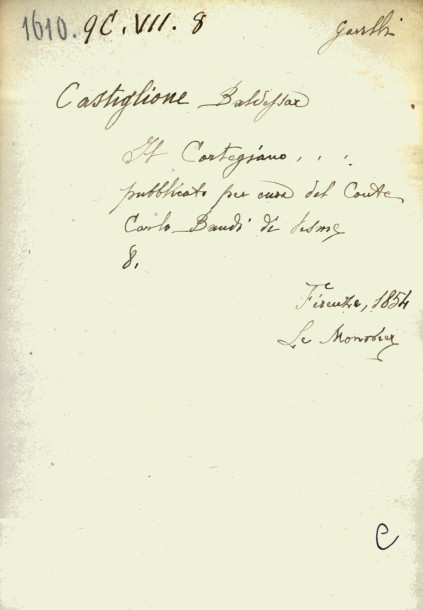 1610. 9C. VII. 8
Castiglione Baldessar
Il Cortegiano . . .
pubblicato per cura del Conte
Carlo Baudi di Vesme
8.
Firenze, 1854
Le Monnier
C